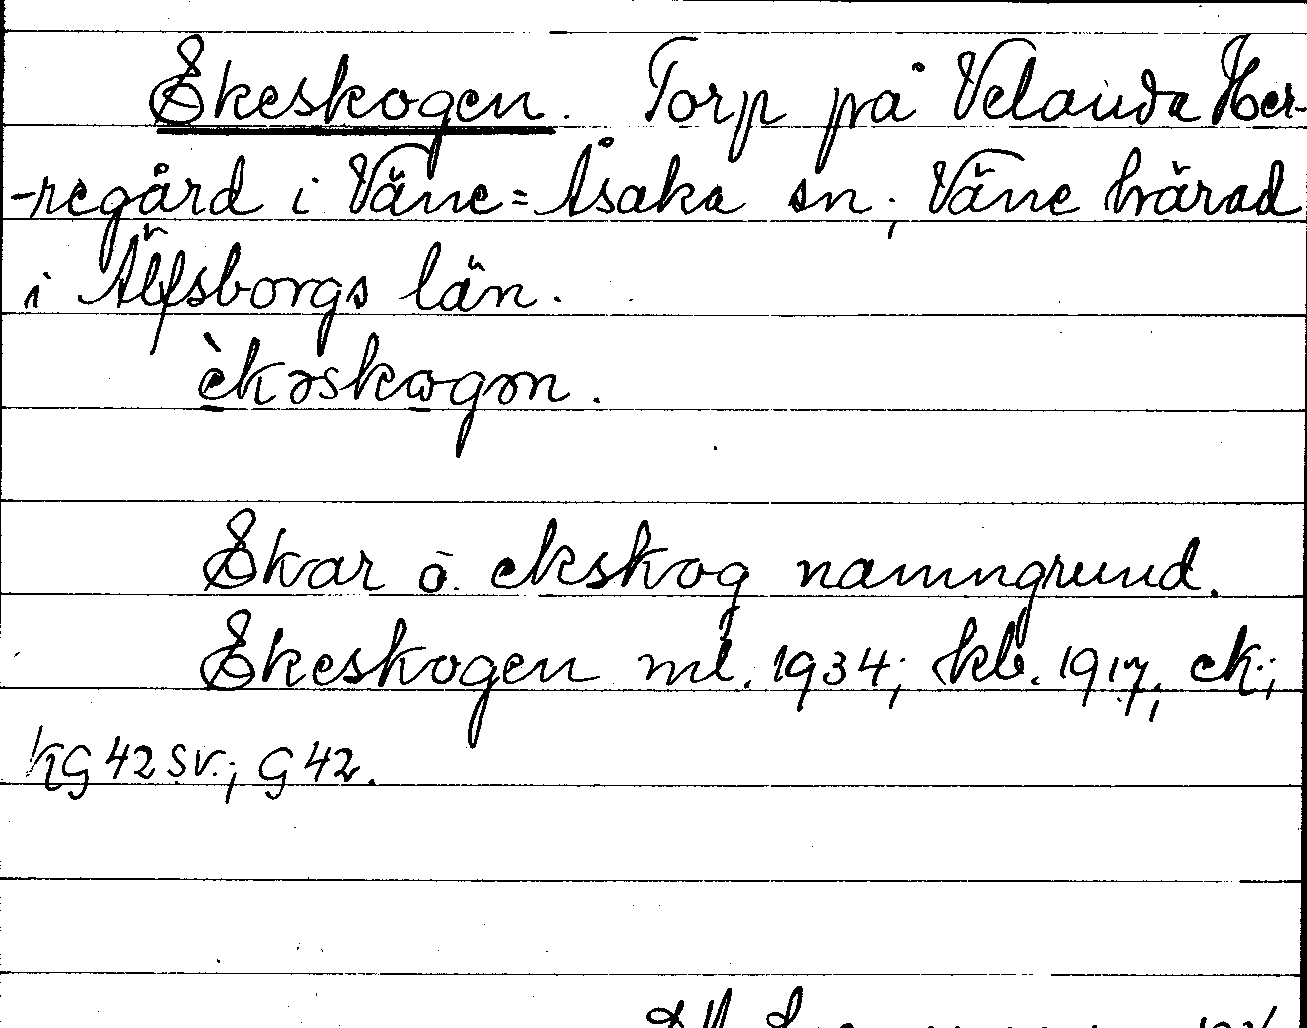 Ekeskogen. Torp på Velanda Her-
-regård i Väne=Åsaka sn; Väne härad
i Älfsborgs län.
èkəskogən.
Ekar o. ekskog namngrund.
Ekeskogen ml. 1934; kb. 1917; ek.;
KG 42 SV.; G 42.